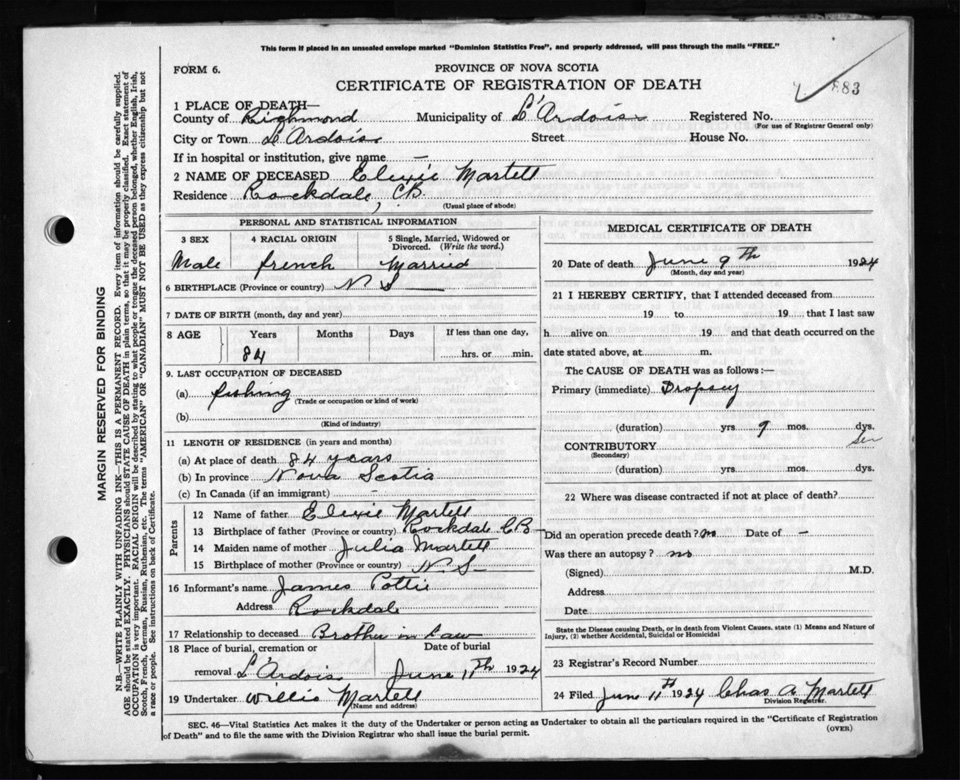 This form if placed in an unsealed envelope marked "Dominion Statistics Free", and properly addressed, will pass through the mails "FREE."
FORM 6.
PROVINCE OF NOVA SCOTIA
CERTIFICATE OF REGISTRATION OF DEATH
883
1 PLACE OF DEATH—
County of Richmond Municipality of L'Ardoise Registered No.
(For use of Registrar General only)
City or Town L'Ardoise Street House No.
If in hospital or institution, give name —
2 NAME OF DECEASED Elexie Martell
Residence Rockdale, C.B.
(Usual place of abode)
PERSONAL AND STATISTICAL INFORMATION
3 SEX 4 RACIAL ORIGIN 5 Single, Married, Widowed or Divorced. (Write the word.)
Male french Married
6 BIRTHPLACE (Province or country) N S
7 DATE OF BIRTH (month, day and year)
8 AGE Years Months Days If less than one day,
84 hrs. or min.
9. LAST OCCUPATION OF DECEASED
(a) fishing
(Trade or occupation or kind of work)
(b)
(Kind of industry)
11 LENGTH OF RESIDENCE (in years and months)
(a) At place of death 84 years
(b) In province Nova Scotia
(c) In Canada (if an immigrant) -
Parents
12 Name of father Elexie Martell
13 Birthplace of father (Province or country) Rockdale C.B
14 Maiden name of mother Julia Martell
15 Birthplace of mother (Province or country) N.S
16 Informant's name James Pottie
Address Rockdale
17 Relationship to deceased Brother in law
18 Place of burial, cremation or Date of burial
removal L'Ardois June 11th 1924
19 Undertaker Willis Martell
(Name and address)
MEDICAL CERTIFICATE OF DEATH
20 Date of death June 9th 1924
(Month, day and year)
21 I HEREBY CERTIFY, that I attended deceased from
19 to 19 that I last saw
h alive on 19 and that death occurred on the
date stated above, at m.
The CAUSE OF DEATH was as follows:—
Primary (immediate) Dropsey
(duration) yrs 9 mos. dys.
CONTRIBUTORY
(Secondary)
(duration) yrs. mos. dys.
22 Where was disease contracted if not at place of death?
Did an operation precede death? no Date of —
Was there an autopsy? no
(Signed) M.D.
Address
Date
State the Disease causing Death, or in death from Violent Causes, state (1) Means and Nature of Injury, (2) whether Accidental, Suicidal or Homicidal
23 Registrar's Record Number
24 Filed June 11th 1924 Chas A. Martell
Division Registrar.
SEC. 46—Vital Statistics Act makes it the duty of the Undertaker or person acting as Undertaker to obtain all the particulars required in the "Certificate of Registration
of Death" and to file the same with the Division Registrar who shall issue the burial permit.
(OVER)
MARGIN RESERVED FOR BINDING
N.B.—WRITE PLAINLY WITH UNFADING INK—THIS IS A PERMANENT RECORD. Every item of information should be carefully supplied.
AGE should be stated EXACTLY. PHYSICIANS should STATE CAUSE OF DEATH in plain terms, so that it may be properly classified. Exact statement of
OCCUPATION is very important. RACIAL ORIGIN will be described by stating to what people or tongue the deceased person belonged, whether English, Irish,
Scotch, French, German, Russian, Ruthenian, etc. The terms "AMERICAN" OR "CANADIAN" MUST NOT BE USED as they express citizenship but not
a race or people. See instructions on back of Certificate.